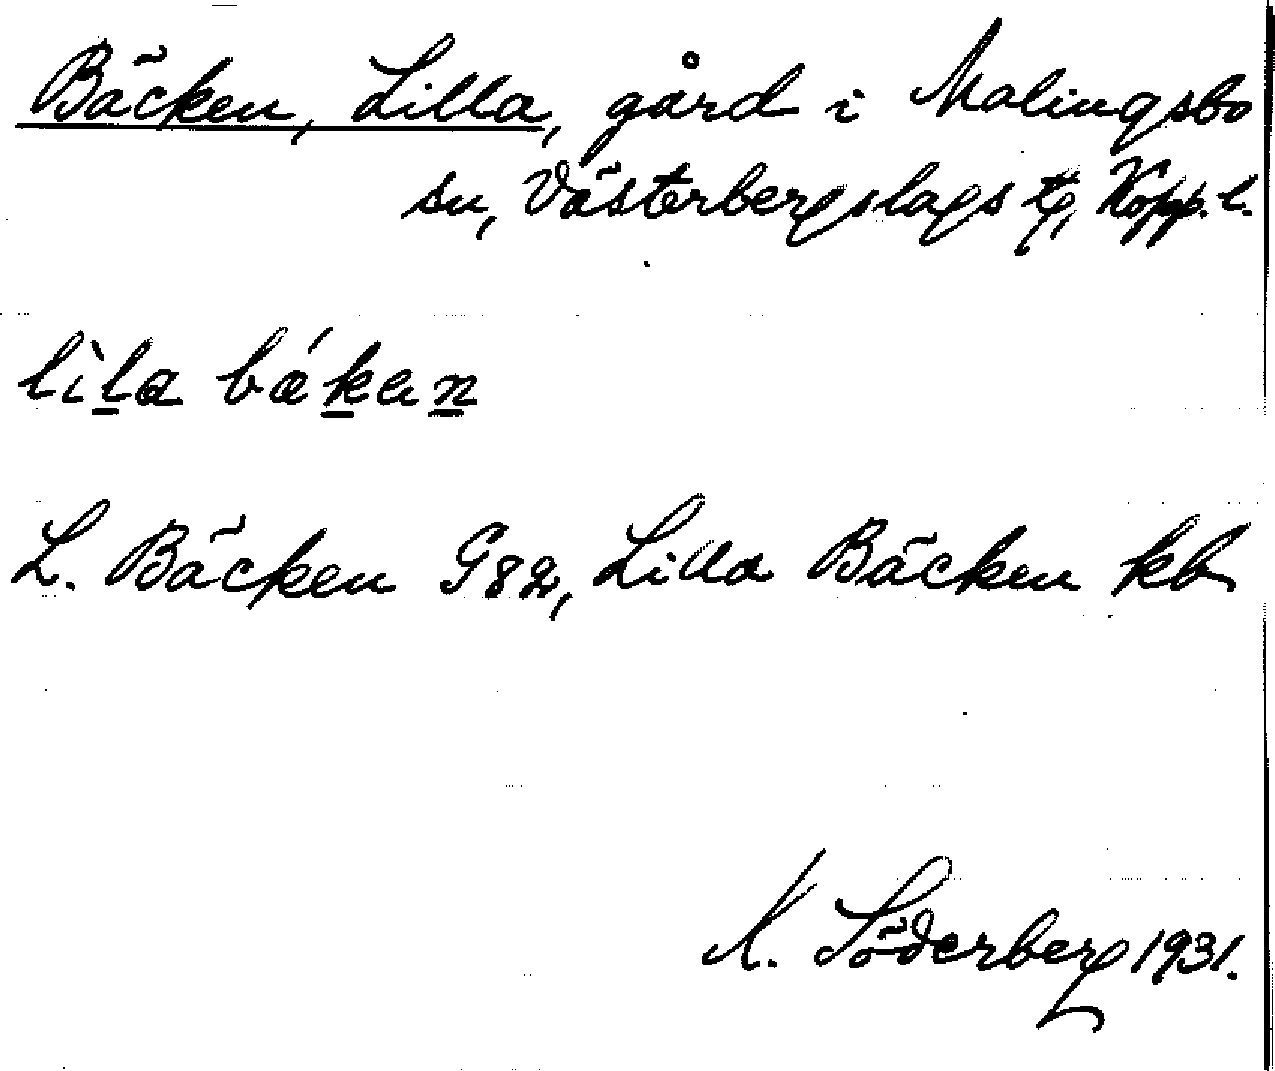 Bäcken, Lilla, gård i Malingsbo
sn, Västerbergslags tg, Kopp. l.
lìla bǽken
L. Bäcken G82, Lilla Bäcken kb
K. Söderberg 1931.